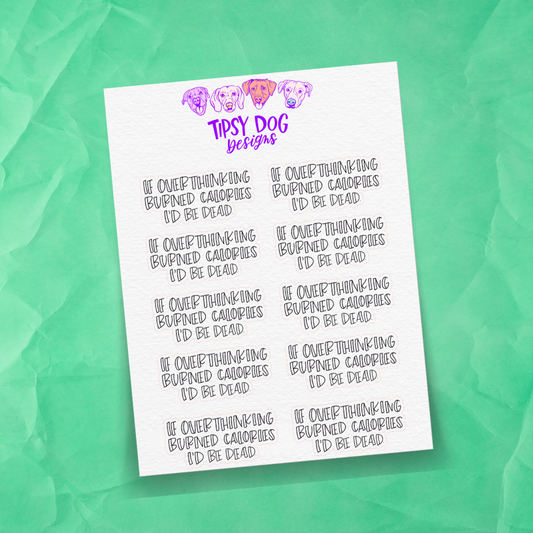 TIPSY DOG
Designs
IF OVERTHINKING
BURNED CALORIES
I'D BE DEAD
IF OVERTHINKING
BURNED CALORIES
I'D BE DEAD
IF OVERTHINKING
BURNED CALORIES
I'D BE DEAD
IF OVERTHINKING
BURNED CALORIES
I'D BE DEAD
IF OVERTHINKING
BURNED CALORIES
I'D BE DEAD
IF OVERTHINKING
BURNED CALORIES
I'D BE DEAD
IF OVERTHINKING
BURNED CALORIES
I'D BE DEAD
IF OVERTHINKING
BURNED CALORIES
I'D BE DEAD
IF OVERTHINKING
BURNED CALORIES
I'D BE DEAD
IF OVERTHINKING
BURNED CALORIES
I'D BE DEAD